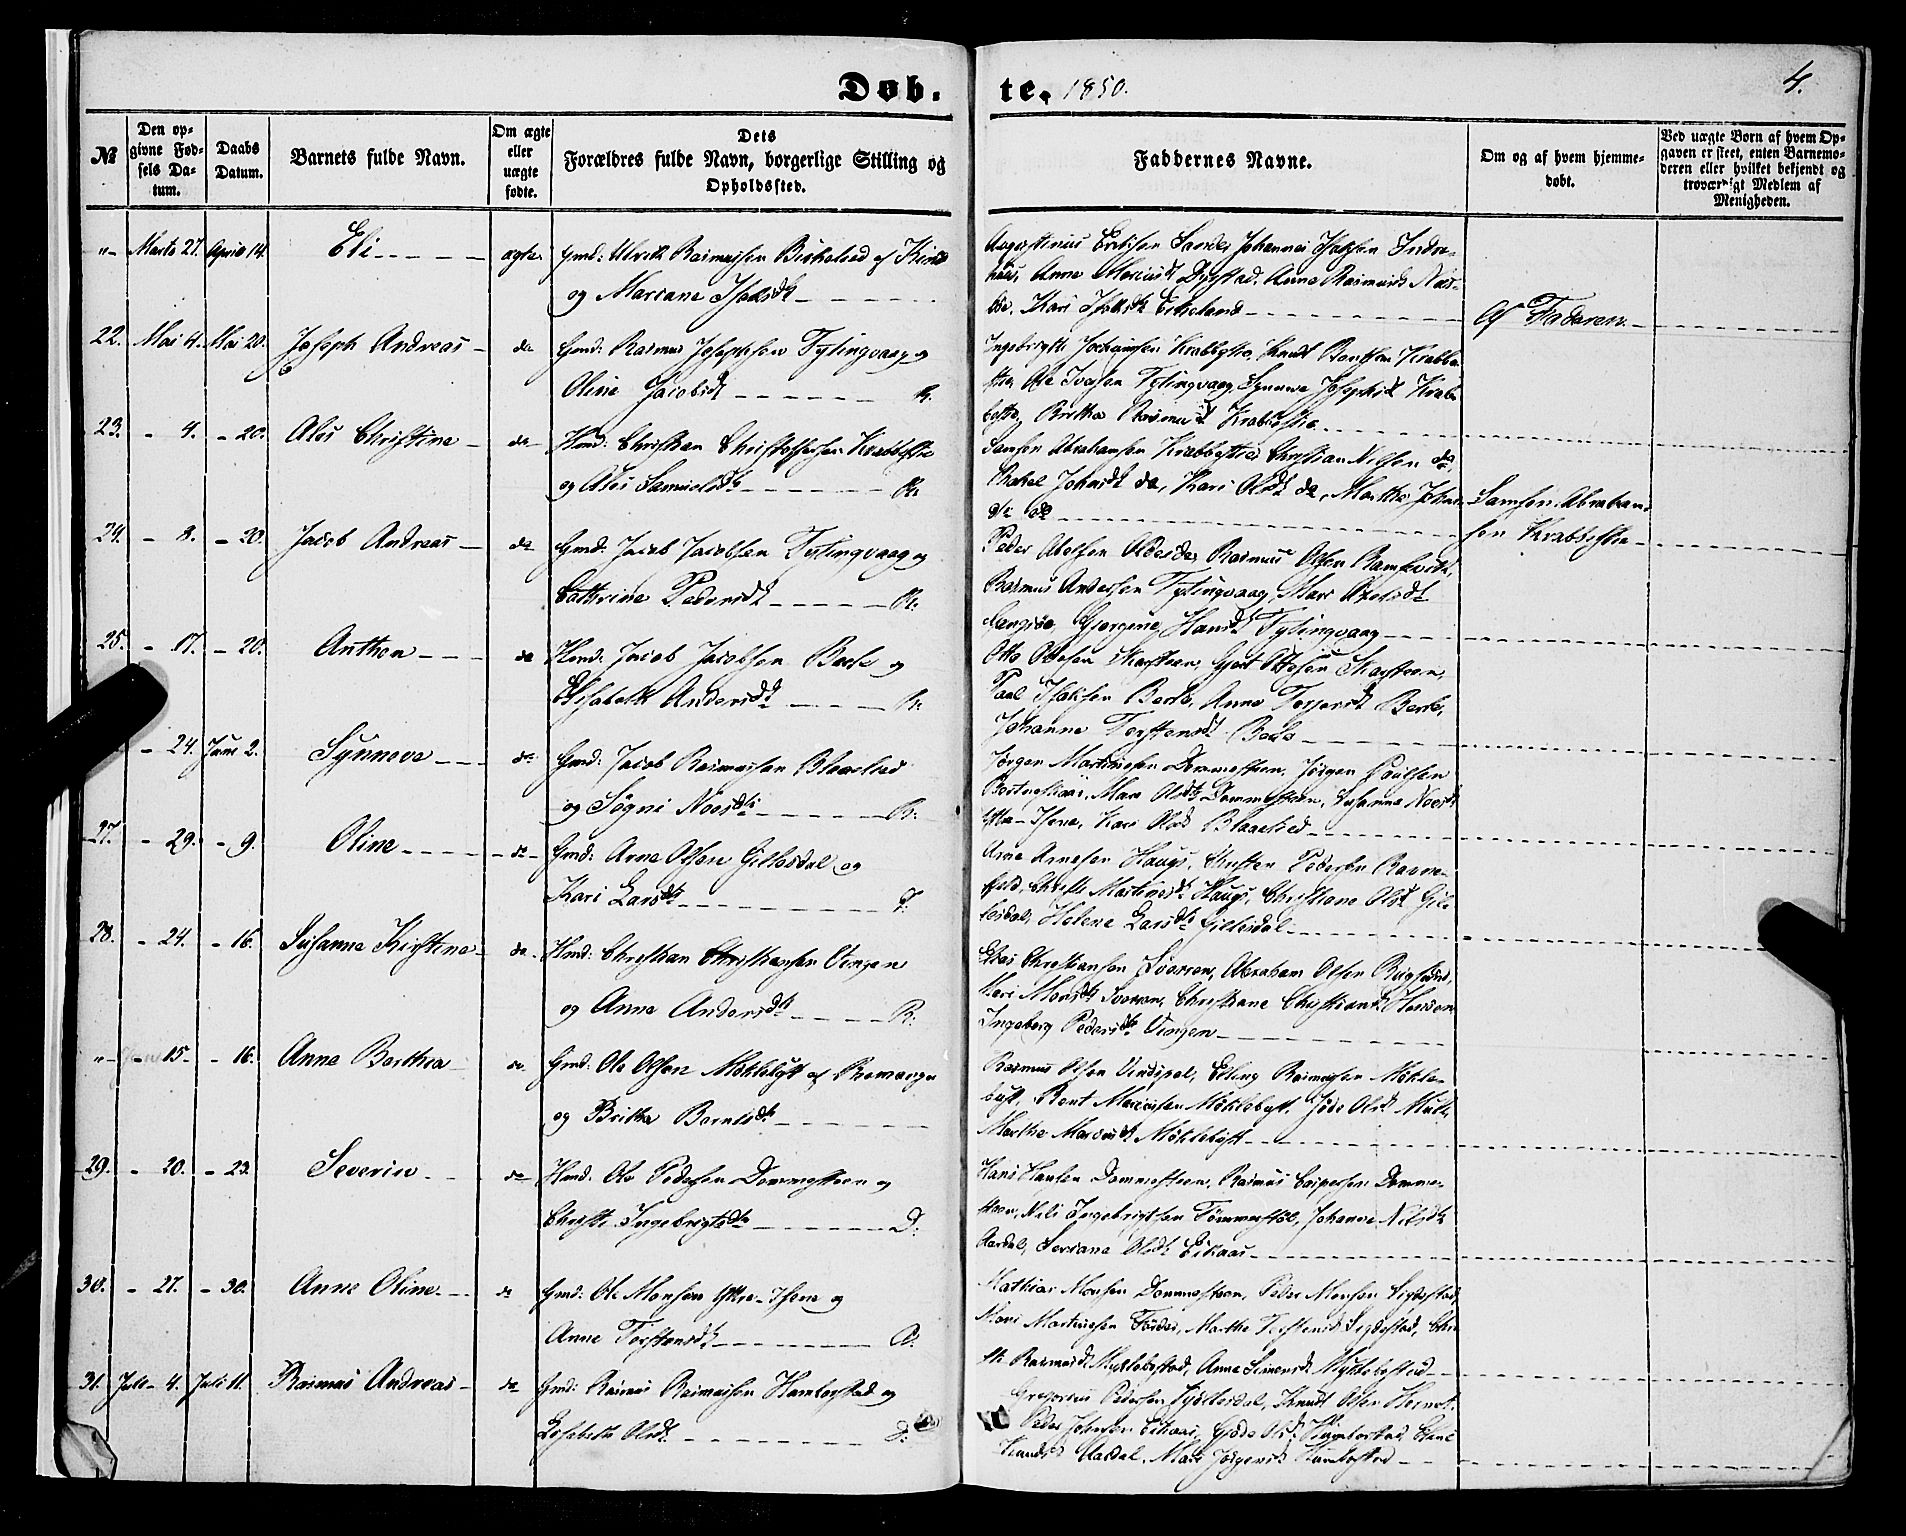 Døb.
te. 1850.
4.
No
Den opgivne Fødsels Datum.
Daabs Datum.
Barnets fulde Navn.
Om ægte eller uægte fødte.
Dets Forældres fulde Navn, borgerlige Stilling og Opholdssted.
Faddernes Navne.
Om og af hvem hjemmedøbt.
Ved uægte Børn af hvem Opgaven er skeet, enten Barnemoderen eller hvilket bekjendt og troværdigt Medlem af Menigheden.
"- Marts 27. April 14. Eli ægte. Gmd: Ulrik Rasmussen Birkelied af Kinds
og Mariane Isaksdt
Augustinus Sande, Johannes Isaksen Indre-
huus, Anne Mariusdt Dyrstad, Anne Rasmusdt
Kari Isaksdt Eikeland
Af Faderen
22. Mai 4. Mai 20. Joseph Andreas do Gmd: Rasmus Josephsen Tytingvaag og
Oline Jacobsdt R.
Ingebrigt Jochumsen Krabbestie, Knudt Bentsen Krabbe-
stie, Ole Iversen Tytingvaag, Synneve Josephsdt Krab-
bestie, Brithe Rasmusdt Krabbestie
23. - 4. - 20. Alis Christine do Hmd: Christian Christophersen Krabbestie
og Alis Samuelsdt R:
Samson Abrahamsen Krabbestie, Christian Nilsen do,
Rakel Johnsdt do, Kari Olsdt do, Marthe Johan-
dt do
Samson Abraham-
sen Krabbestie
24. - 8. - 20. Jacob Andreas do Gmd: Jacob Jacobsen Tytingvaag og
Cathrine Pedersdt R:
Peder Abelsen Oldeide, Rasmus Olsen Ramsvik,
Rasmus Andersen Tytingvaag, Mari Abelsdt
Gjørgine Hansdt Tytingvaag
25. - 17. - 20. Anthon do Hmd: Jacob Jacobsen Berle og
Elisabeth Andersdt R:
Otto Ottesen Skarsteen, Gjert Ottesen Skarsteen,
Paul Isaksen Berle, Anne Torgersdt Berle,
Johanne Torstensdt Berle
- 24. Juni 2. Synneve do Gmd: Jacob Rasmussen Blaalied
og Søgni Noesdt R:
Jørgen Martinusen Dommesteen, Jørgen Poulsen
Mari Olsdt Dommesteen, Susanne Noesdt
Ytre-Isene, Kari Olsdt Blaalied
27. - 29. - 9. Oline do Gmd: Arne Olsen Gillesdal og
Kari Larsdt F:
Arne Arnesen Hauge, Christen Pedersen Ravne-
Christi Martinusdt Hauge, Christiane Olsdt Gil-
lesdal, Helene Larsdt Gillesdal
28. - 24. - 16. Susanne Kirstine do Hmd: Christian Christiansen Vengen
og Anne Andersdt R:
Elias Christiansen Svarren, Abraham Olsen Rugsund,
Mari Monsdt Svarren, Christiane Christiansdt
Ingeborg Pedersdt Vengen
"- - 15. - 16. Anne Berthea do Gmd: Ole Olsen Møklebyst af Bremanger
og Brithe Berntsdt
Rasmus Olsen Vindspol, Elling Rasmussen Møkle-
byst, Bent Mariusen Møklebyst,
Marthe Mariusdt Møklebyst
29. - 20. - 23. Severin do Hmd: Ole Pedersen Dommesteen og
Christi Ingebrigtsdt D:
Hans Hansen Dommesteen, Rasmus Caspersen Domme-
steen, Nils Ingebrigtsen Tømmestøl, Johanne Nilsdt
Aardal, Seriane Olsdt Eikaas
30. - 27. - 30. Anne Oline do Gmd: Ole Monsen Ytre-Isene og
Anne Torstensdt D:
Mathias Monsen Dommesteen, Peder Monsen Sigdestad,
Mons Martinusen Førde, Marthe Torstensdt Sigdestad, Chri-
sti Rasmusdt Myklebustad, Anne Simonsdt Myklebustad
31. Juli 4. Juli 11. Rasmus Andreas do Gmd: Rasmus Rasmussen Humborstad og
Lisabeth Olsdt D:
Gregorius Pedersen Tystesdal, Knudt Olsen
Peder Johnsen Eikaas, Gjøde Olsdt Humborstad,
Knudsdt Aardal, Mari Jørgensdt Humborstad